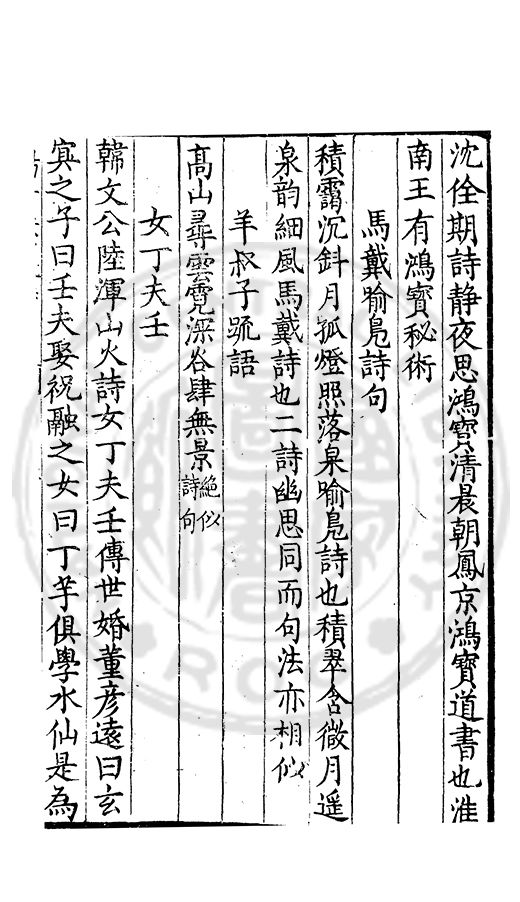 沈佺期詩静夜思鴻寳清晨朝鳳京鴻寳道書也淮
南王有鴻寳秘術
馬戴喻鳬詩句
積靄沉斜月孤燈照落泉喻鳬詩也積翠含微月遥
泉韵細風馬戴詩也二詩幽思同而句法亦相似
羊叔子䟽語
髙山尋雲霓深谷肆無景絶似詩句
女丁夫壬
韓文公陸渾山火詩女丁夫壬傳世婚董彦遠曰玄
㝠之子曰壬夫娶祝融之女曰丁芉俱學水仙是為